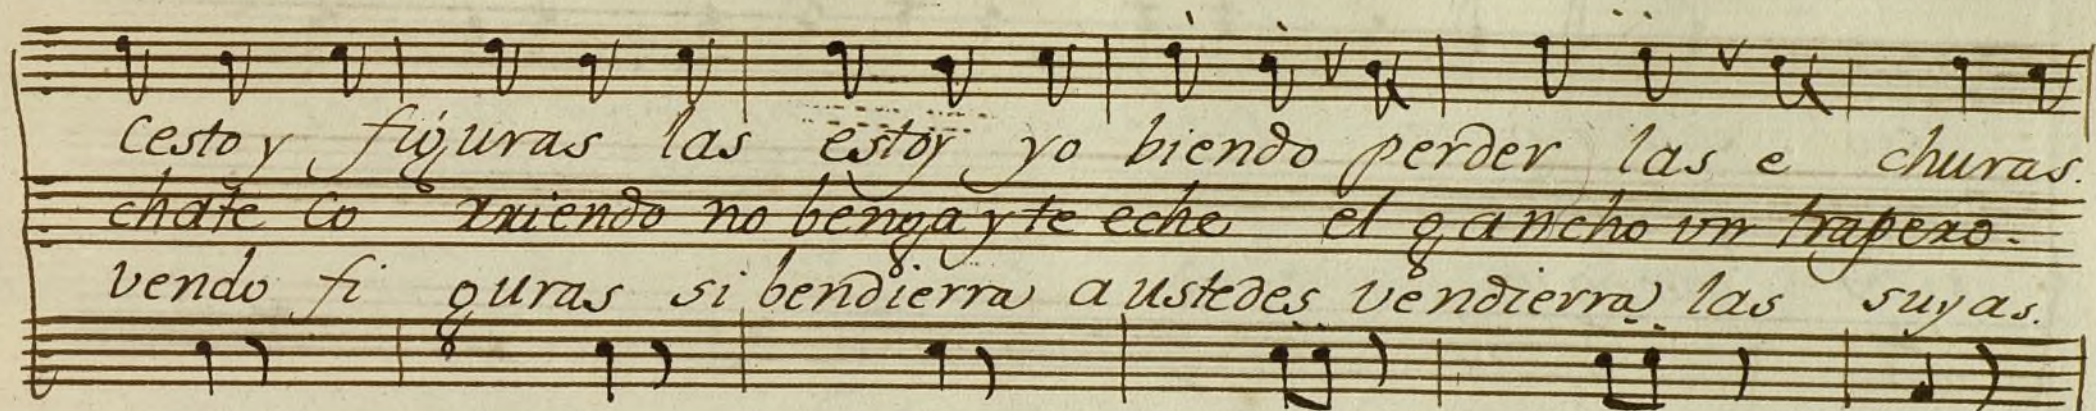 Cesto y figuras las estoy yo biendo perder las e churas.
chate Co rriendo no benga y te eche el gancho un trapero.
vendo fi guras si bendierra a ustedes vendierra las suyas.